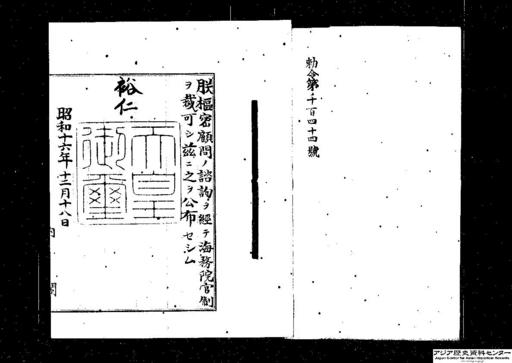 勅令第千百四十四號
朕樞密顧問ノ諮詢ヲ經テ海務院官制
ヲ裁可シ茲ニ之ヲ公布セシム
裕仁
天皇
御璽
昭和十六年十二月十八日
内閣
アジア歴史資料センター
Japan Center for Asian Historical Records